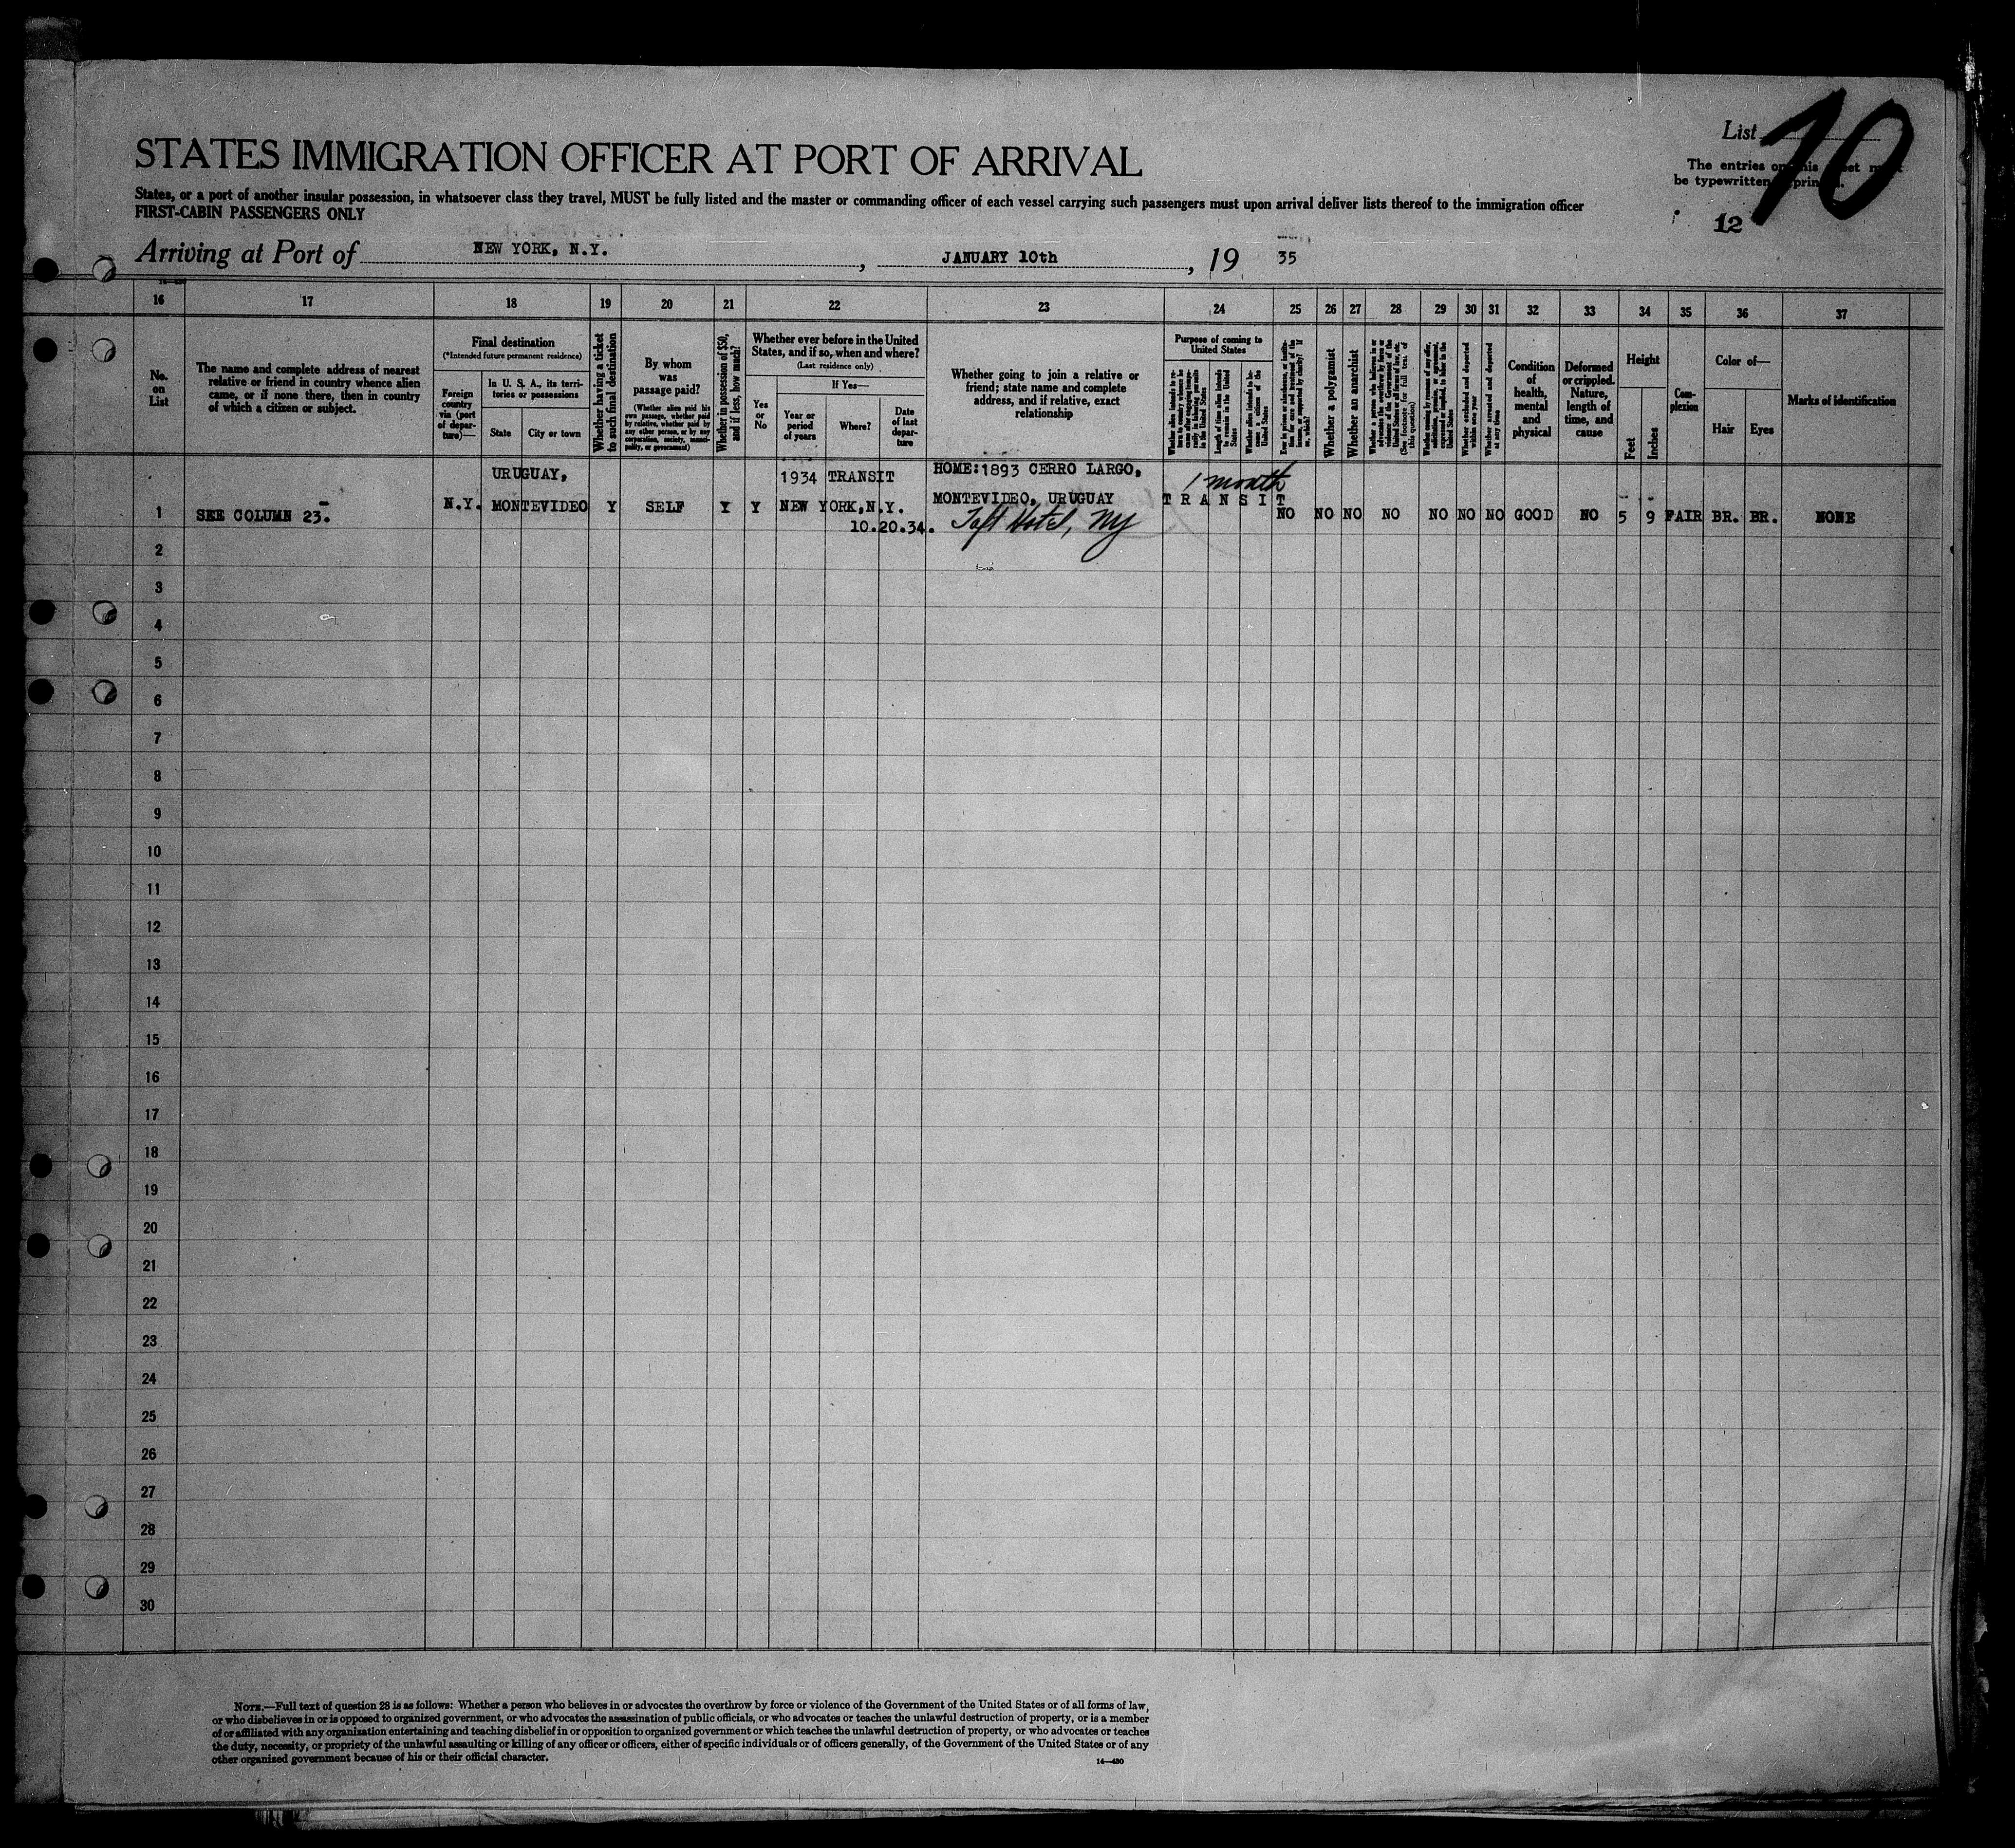 List 10
The entries on this
be typewritten
12
STATES IMMIGRATION OFFICER AT PORT OF ARRIVAL
States, or a port of another insular possession, in whatsoever class they travel, MUST be fully listed and the master or commanding officer of each vessel carrying such passengers must upon arrival deliver lists thereof to the immigration officer
FIRST-CABIN PASSENGERS ONLY
Arriving at Port of NEW YORK, N.Y., JANUARY 10th, 19 35
16 17 18 19 20 21 22 23 24 25 26 27 28 29 30 31 32 33 34 35 36 37
No. on List
The name and complete address of nearest
relative or friend in country whence alien
came, or if none there, then in country
of which a citizen or subject.
Final destination
(*Intended future permanent residence)
Foreign country via (port of departure)—
In U. S. A., its territories or possessions
State
City or town
Whether having a ticket
to such final destination
By whom
was
passage paid?
(Whether alien paid his
own passage, whether paid
by relative, whether paid by
any other person, or by any
corporation, society, munici-
pality, or government)
Whether in possession of $50,
and if less, how much?
Whether ever before in the United
States, and if so, when and where?
(Last residence only)
Yes
or
No
If Yes—
Year or
period
of years
Where?
Date
of last
depar-
ture
Whether going to join a relative or
friend; state name and complete
address, and if relative, exact
relationship
Purpose of coming to
United States
Length of time alien intends
to remain in the United
States
Whether alien intends to be-
come a citizen of the
United States
Whether a polygamist
Whether an anarchist
(See footnote for full text of
this question)
Whether excluded and deported
within one year
Whether arrested and deported
at any time
Condition
of
health,
mental
and
physical
Deformed
or crippled.
Nature,
length of
time, and
cause
Height
Feet
Inches
Com-
plexion
Color of—
Hair
Eyes
Marks of identification
URUGUAY, 1934 TRANSIT HOME:1893 CERRO LARGO, 1 month
1 SEE COLUMN 23. N.Y. MONTEVIDEO Y SELF Y Y NEW YORK,N.Y. MONTEVIDEO, URUGUAY TRANSIT NO NO NO NO NO NO NO GOOD NO 5 9 FAIR BR. BR. NONE
10.20.34. Taft Hotel, NY
2
3
4
5
6
7
8
9
10
11
12
13
14
15
16
17
18
19
20
21
22
23
24
25
26
27
28
29
30
NOTE.—Full text of question 28 is as follows: Whether a person who believes in or advocates the overthrow by force or violence of the Government of the United States or of all forms of law,
or who disbelieves in or is opposed to organized government, or who advocates the assassination of public officials, or who advocates or teaches the unlawful destruction of property, or is a member
of or affiliated with any organization entertaining and teaching disbelief in or opposition to organized government or which teaches the unlawful destruction of property, or who advocates or teaches
the duty, necessity, or propriety of the unlawful assaulting or killing of any officer or officers, either of specific individuals or of officers generally, of the Government of the United States or of any
other organized government because of his or their official character.
14—430